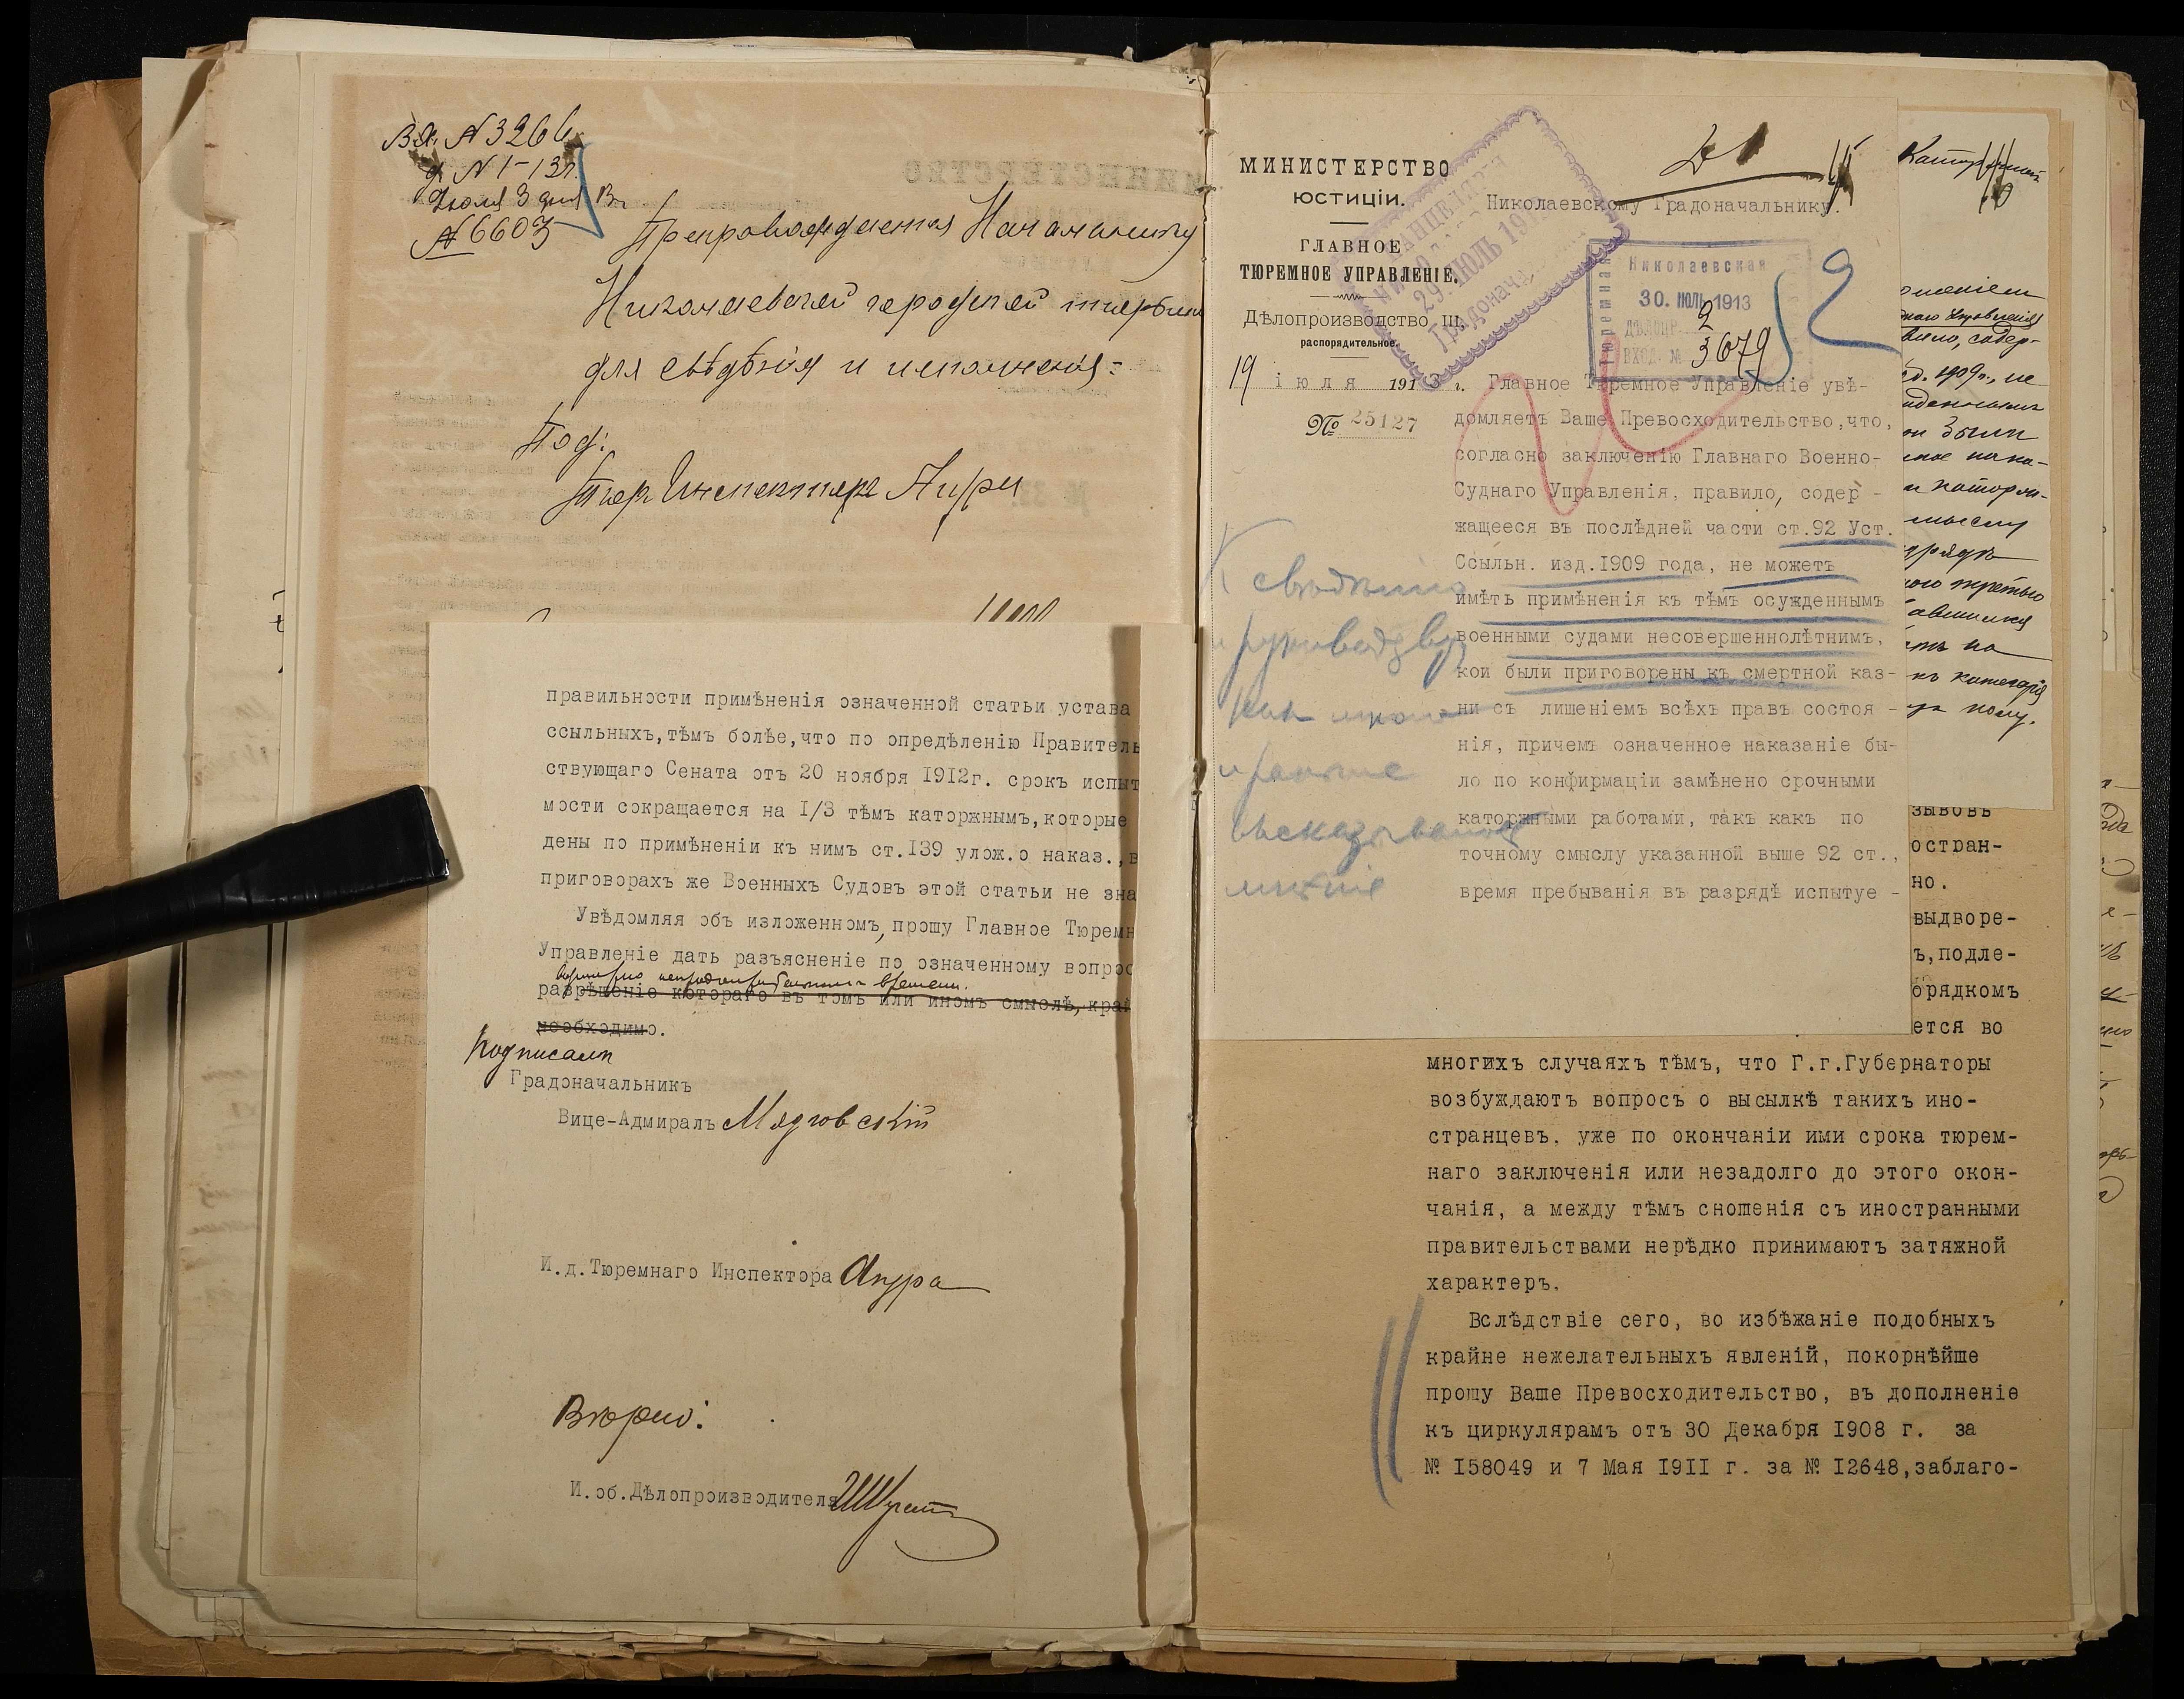 Вх. № 3266
д. № 1-13 г.
Іюля 3 дня 13 г.
№ 6603
Препровождается Начальнику
Николаевской городской тюрьмы
для свѣдѣнія и исполненія:
Под:
Тюр. Инспекторъ
правильности примѣненія означенной статьи устава
ссыльныхъ, тѣмъ болѣе, что по опредѣленію Правитель
ствующаго Сената отъ 20 ноября 1912г. срокъ испыт
мости сокращается на I/3 тѣмъ каторжнымъ, которые
дены по примѣненіи къ нимъ ст.139 улож.о наказ., в
приговорахъ же Военныхъ Судовъ этой статьи не зна
Увѣдомляя объ изложенномъ, прошу Главное Тюремн
Управленіе дать разъясненіе по означенному вопрос
времени.
разрѣшеніе котораго въ томъ или иномъ смыслѣ, край
необходимо.
Подписалъ
Градоначальникъ
Вице-Адмиралъ Мязговскій
И.д.Тюремнаго Инспектора Апура
Вѣрно:
И.об.Дѣлопроизводителя
МИНИСТЕРСТВО
ЮСТИЦІИ.
ГЛАВНОЕ
ТЮРЕМНОЕ УПРАВЛЕНІЕ.
Дѣлопроизводство III.
распорядительное.
19 іюля 191 г.
№ 25127
29 ІЮЛЬ 19
Градонача
Николаевскому Градоначальнику.
Николаевская
30. ІЮЛЬ 1913
ДѢЛОПР. 2
ВХОД. № 3679
Главное Тюремное Управленіе увѣ-
домляетъ Ваше Превосходительство, что,
согласно заключенію Главнаго Военно-
Суднаго Управленія, правило, содер -
жащееся въ послѣдней части ст.92 Уст.
Ссыльн. изд.1909 года, не можетъ
имѣть примѣненія къ тѣмъ осужденнымъ
военными судами несовершеннолѣтнимъ,
кои были приговорены къ смертной каз-
ни съ лишеніемъ всѣхъ правъ состоя -
нія, причемъ означенное наказаніе бы-
ло по конфирмаціи замѣнено срочными
каторжными работами, такъ какъ по
точному смыслу указанной выше 92 ст.,
время пребыванія въ разрядѣ испытуе -
К свѣдѣнію
и руководству
ранѣе
высказывалось
мнѣніе
д. 1909 г., не
были
на
кому.
зывовъ
остран-
но.
выдворе-
ъ, подле-
орядкомъ
ется во
многихъ случаяхъ тѣмъ, что Г.г.Губернаторы
возбуждаютъ вопросъ о высылкѣ такихъ ино-
странцевъ, уже по окончаніи ими срока тюрем-
наго заключенія или незадолго до этого окон-
чанія, а между тѣмъ сношенія съ иностранными
правительствами нерѣдко принимаютъ затяжной
характеръ.
Вслѣдствіе сего, во избѣжаніе подобныхъ
крайне нежелательныхъ явленій, покорнѣйше
прошу Ваше Превосходительство, въ дополненіе
къ циркулярамъ отъ 30 Декабря 1908 г. за
№ I58049 и 7 Мая I9II г. за № I2648, заблаго-